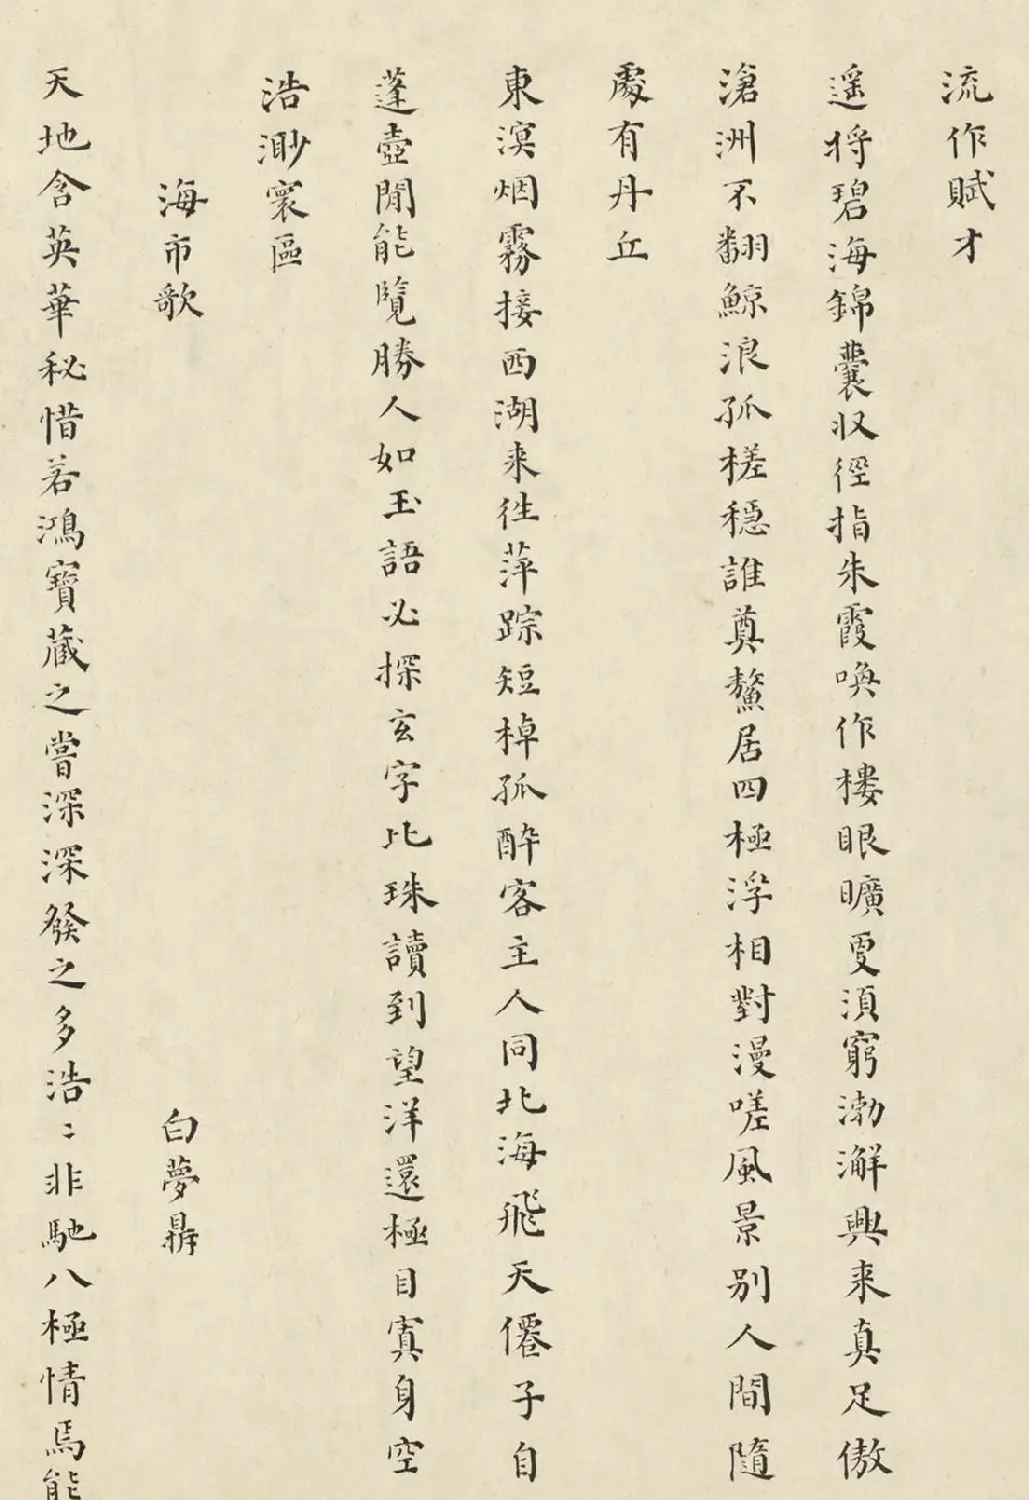 流作賦才
遥将碧海錦囊収徑指朱霞喚作樓眼曠更須窮渤澥興来真足傲
滄洲不翻鯨浪孤槎穏誰奠鰲居四極浮相對漫嗟風景别人間隨
處有丹丘
東溟烟霧接西湖来徃萍踪短棹孤酔客主人同北海飛天僊子自
蓬壺閒能覽勝人如玉語必探玄字比珠讀到望洋還極目寘身空
浩渺寰區
海市歌 白夢鼎
天地含英華秘惜若鴻寶藏之嘗深深發之多浩〻非馳八極情焉能